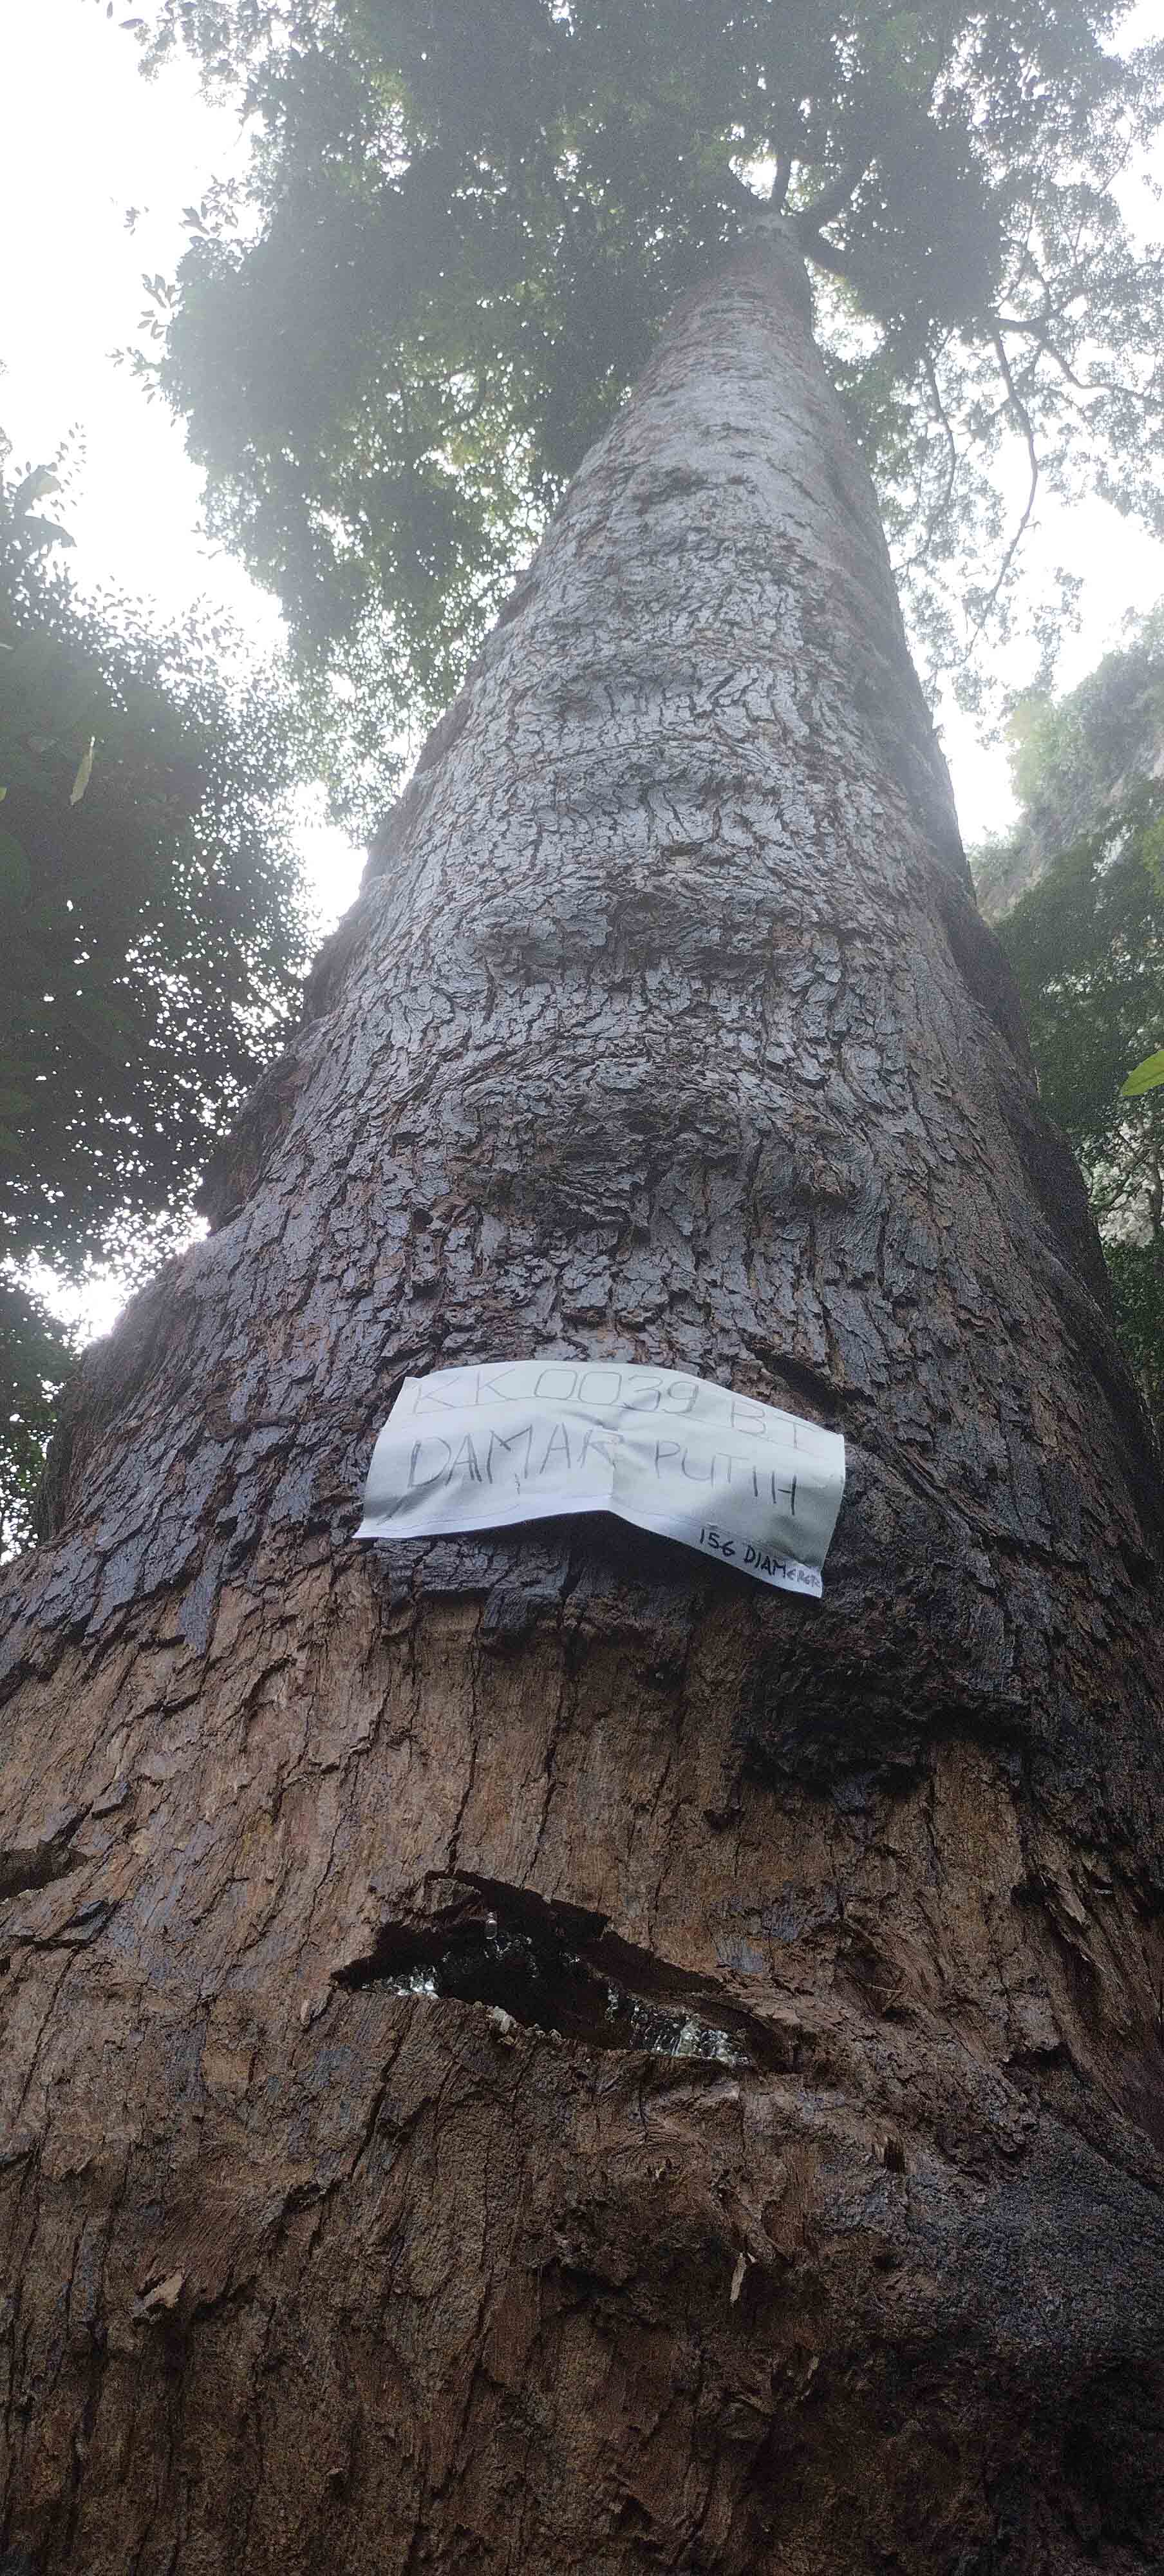 KK 0039 BT
DAMAR PUTIH
156 DIAMETER